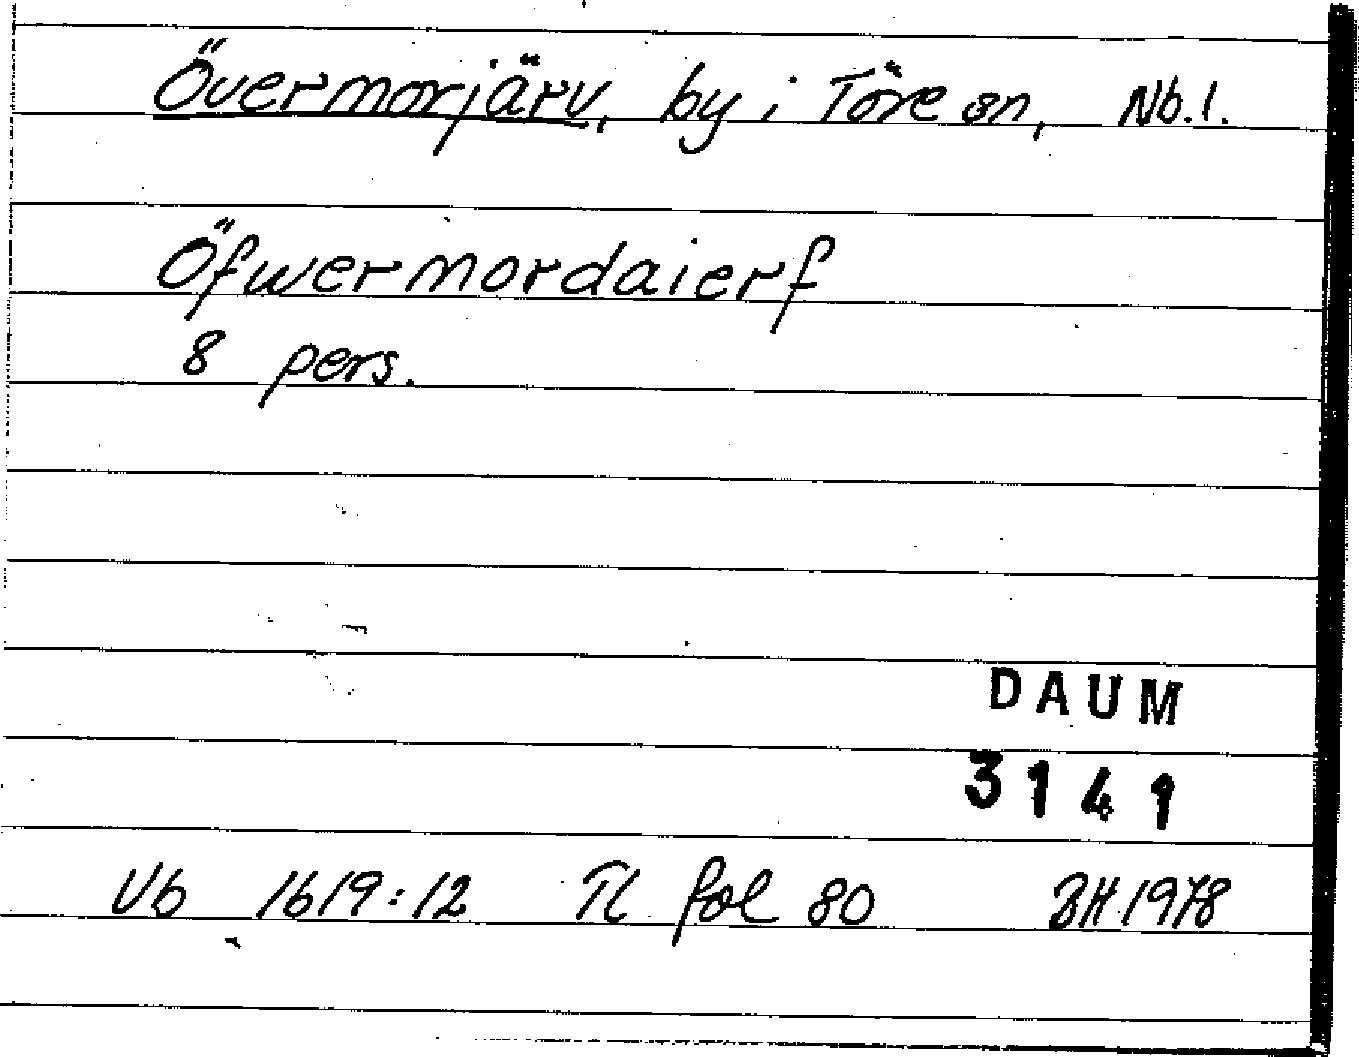 Övermorjärv, by i Töre sn, Nb. l.
Öfwermordaierf
8 pers.
DAUM
3141
Vb 1619:12 Tl fol 80 BH 1978